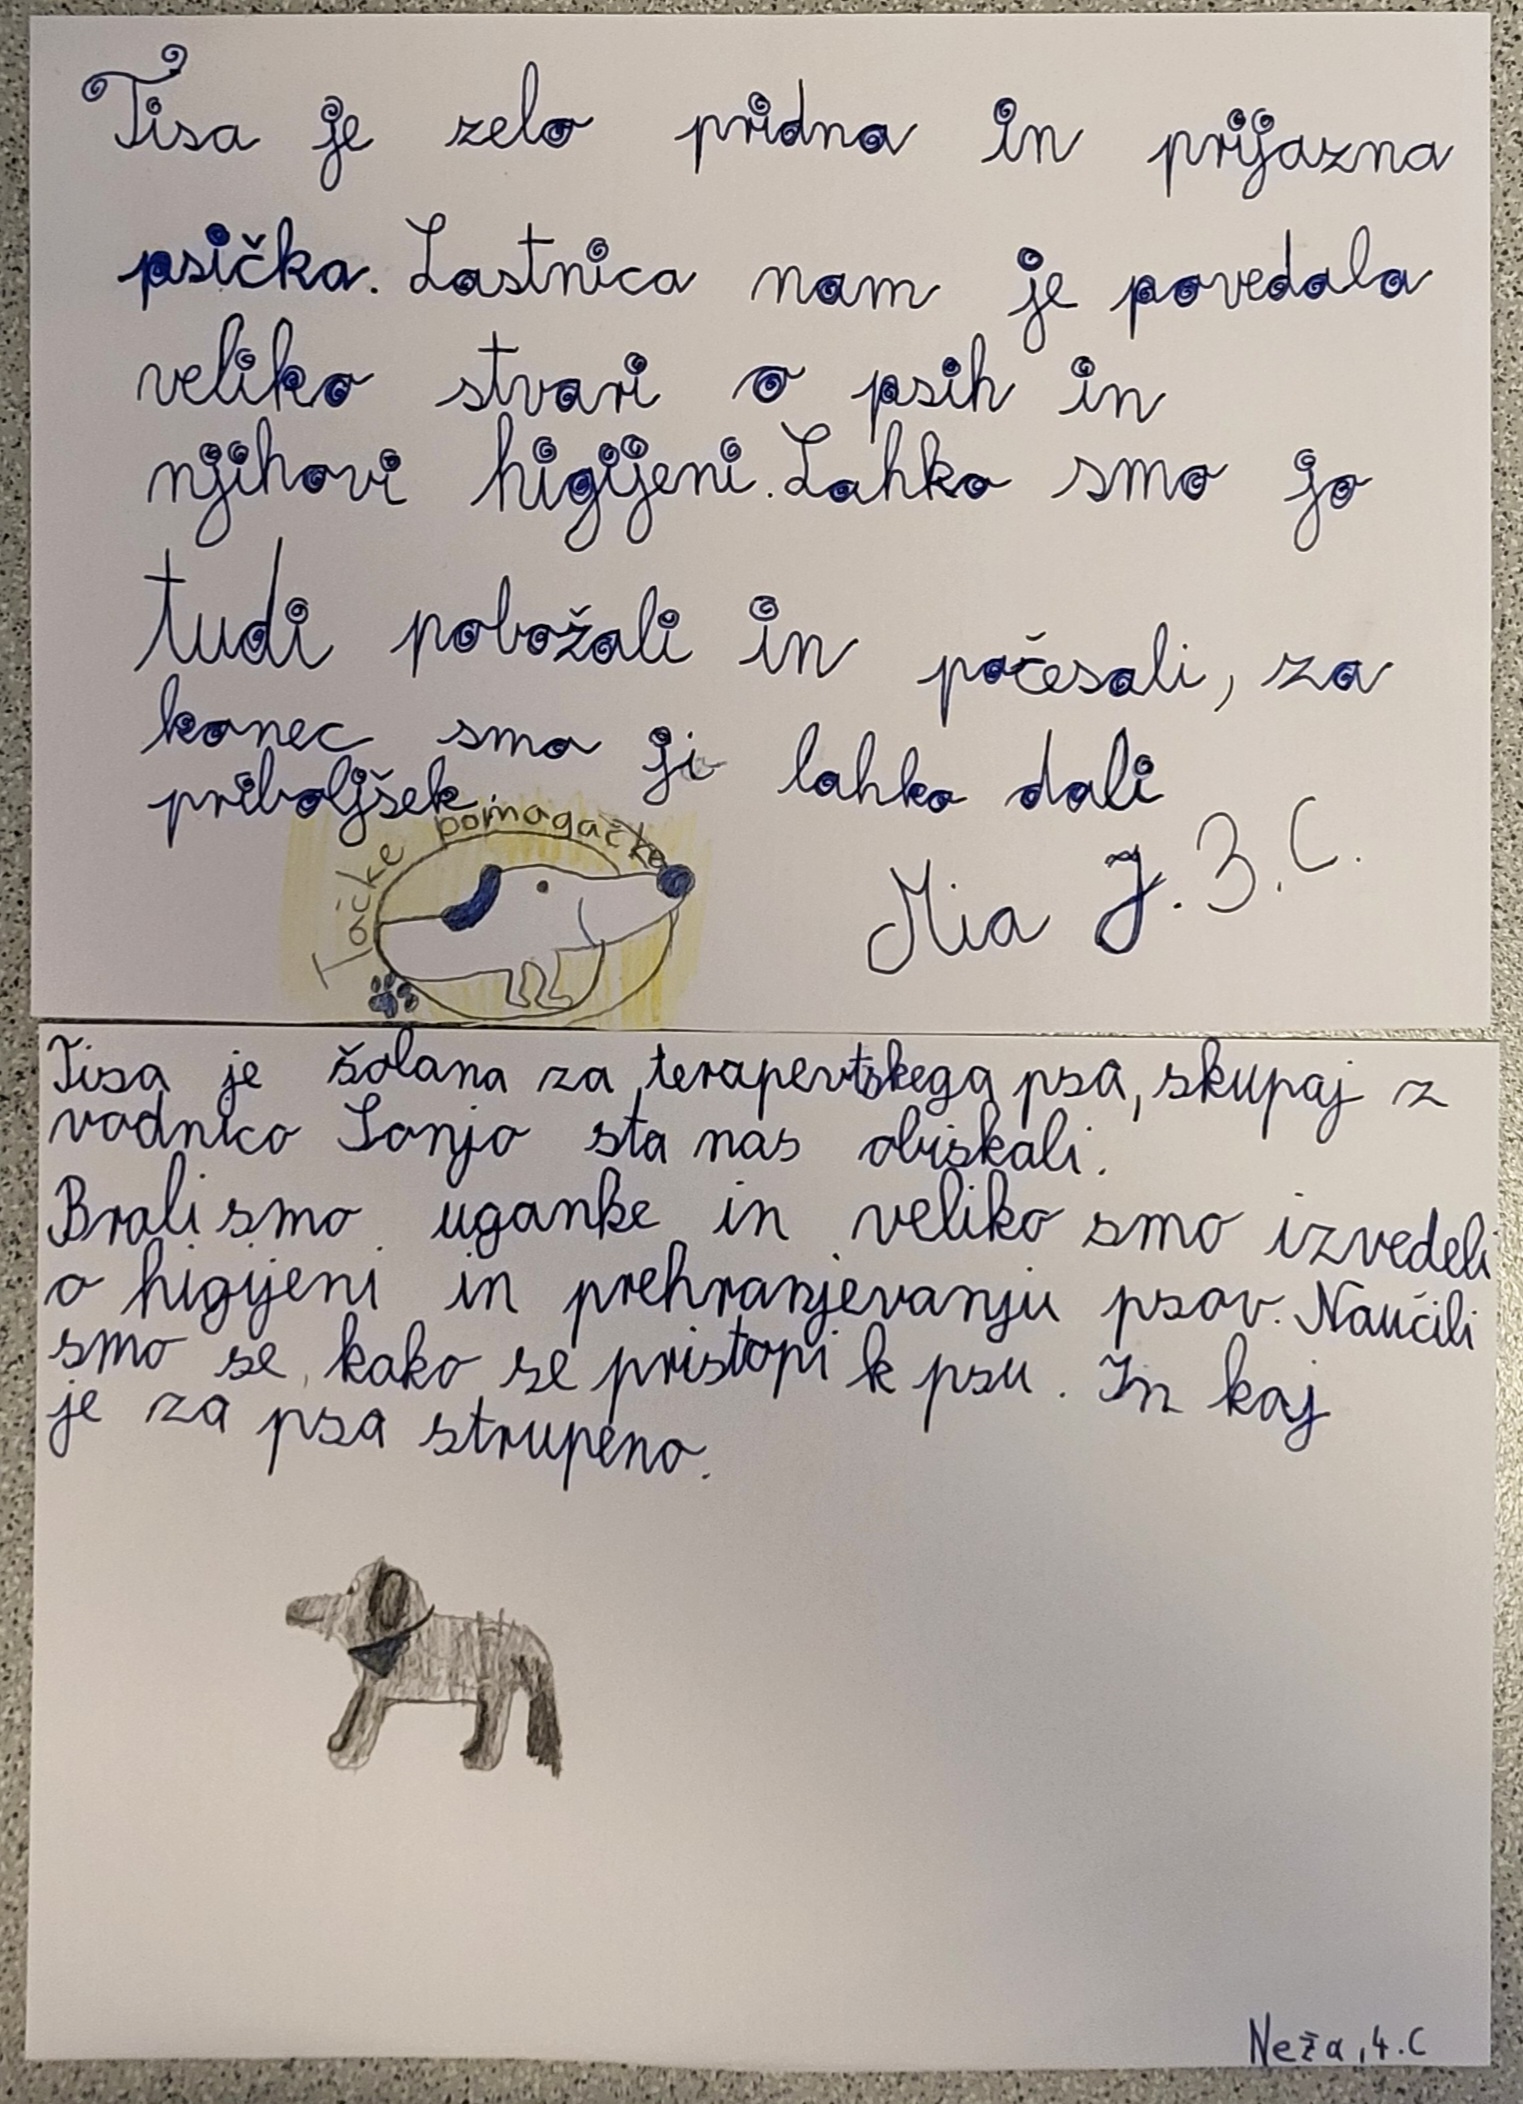 Tisa je zelo pridna in prijazna
psička. Lastnica nam je povedala
veliko stvari o psih in
njihovi higijeni. Lahko smo jo
tudi pobožali in počesali, za
konec smo ji lahko dali
priboljšek.
Tačke pomagačke
Mia J. 3. C.
Tisa je šolana za terapevtskega psa, skupaj z
vodnico Sonjo sta nas obiskali.
Brali smo uganke in veliko smo izvedeli
o higijeni in prehranjevanju psov. Naučili
smo se, kako se pristopi k psu. In kaj
je za psa strupeno.
Neža, 4. C